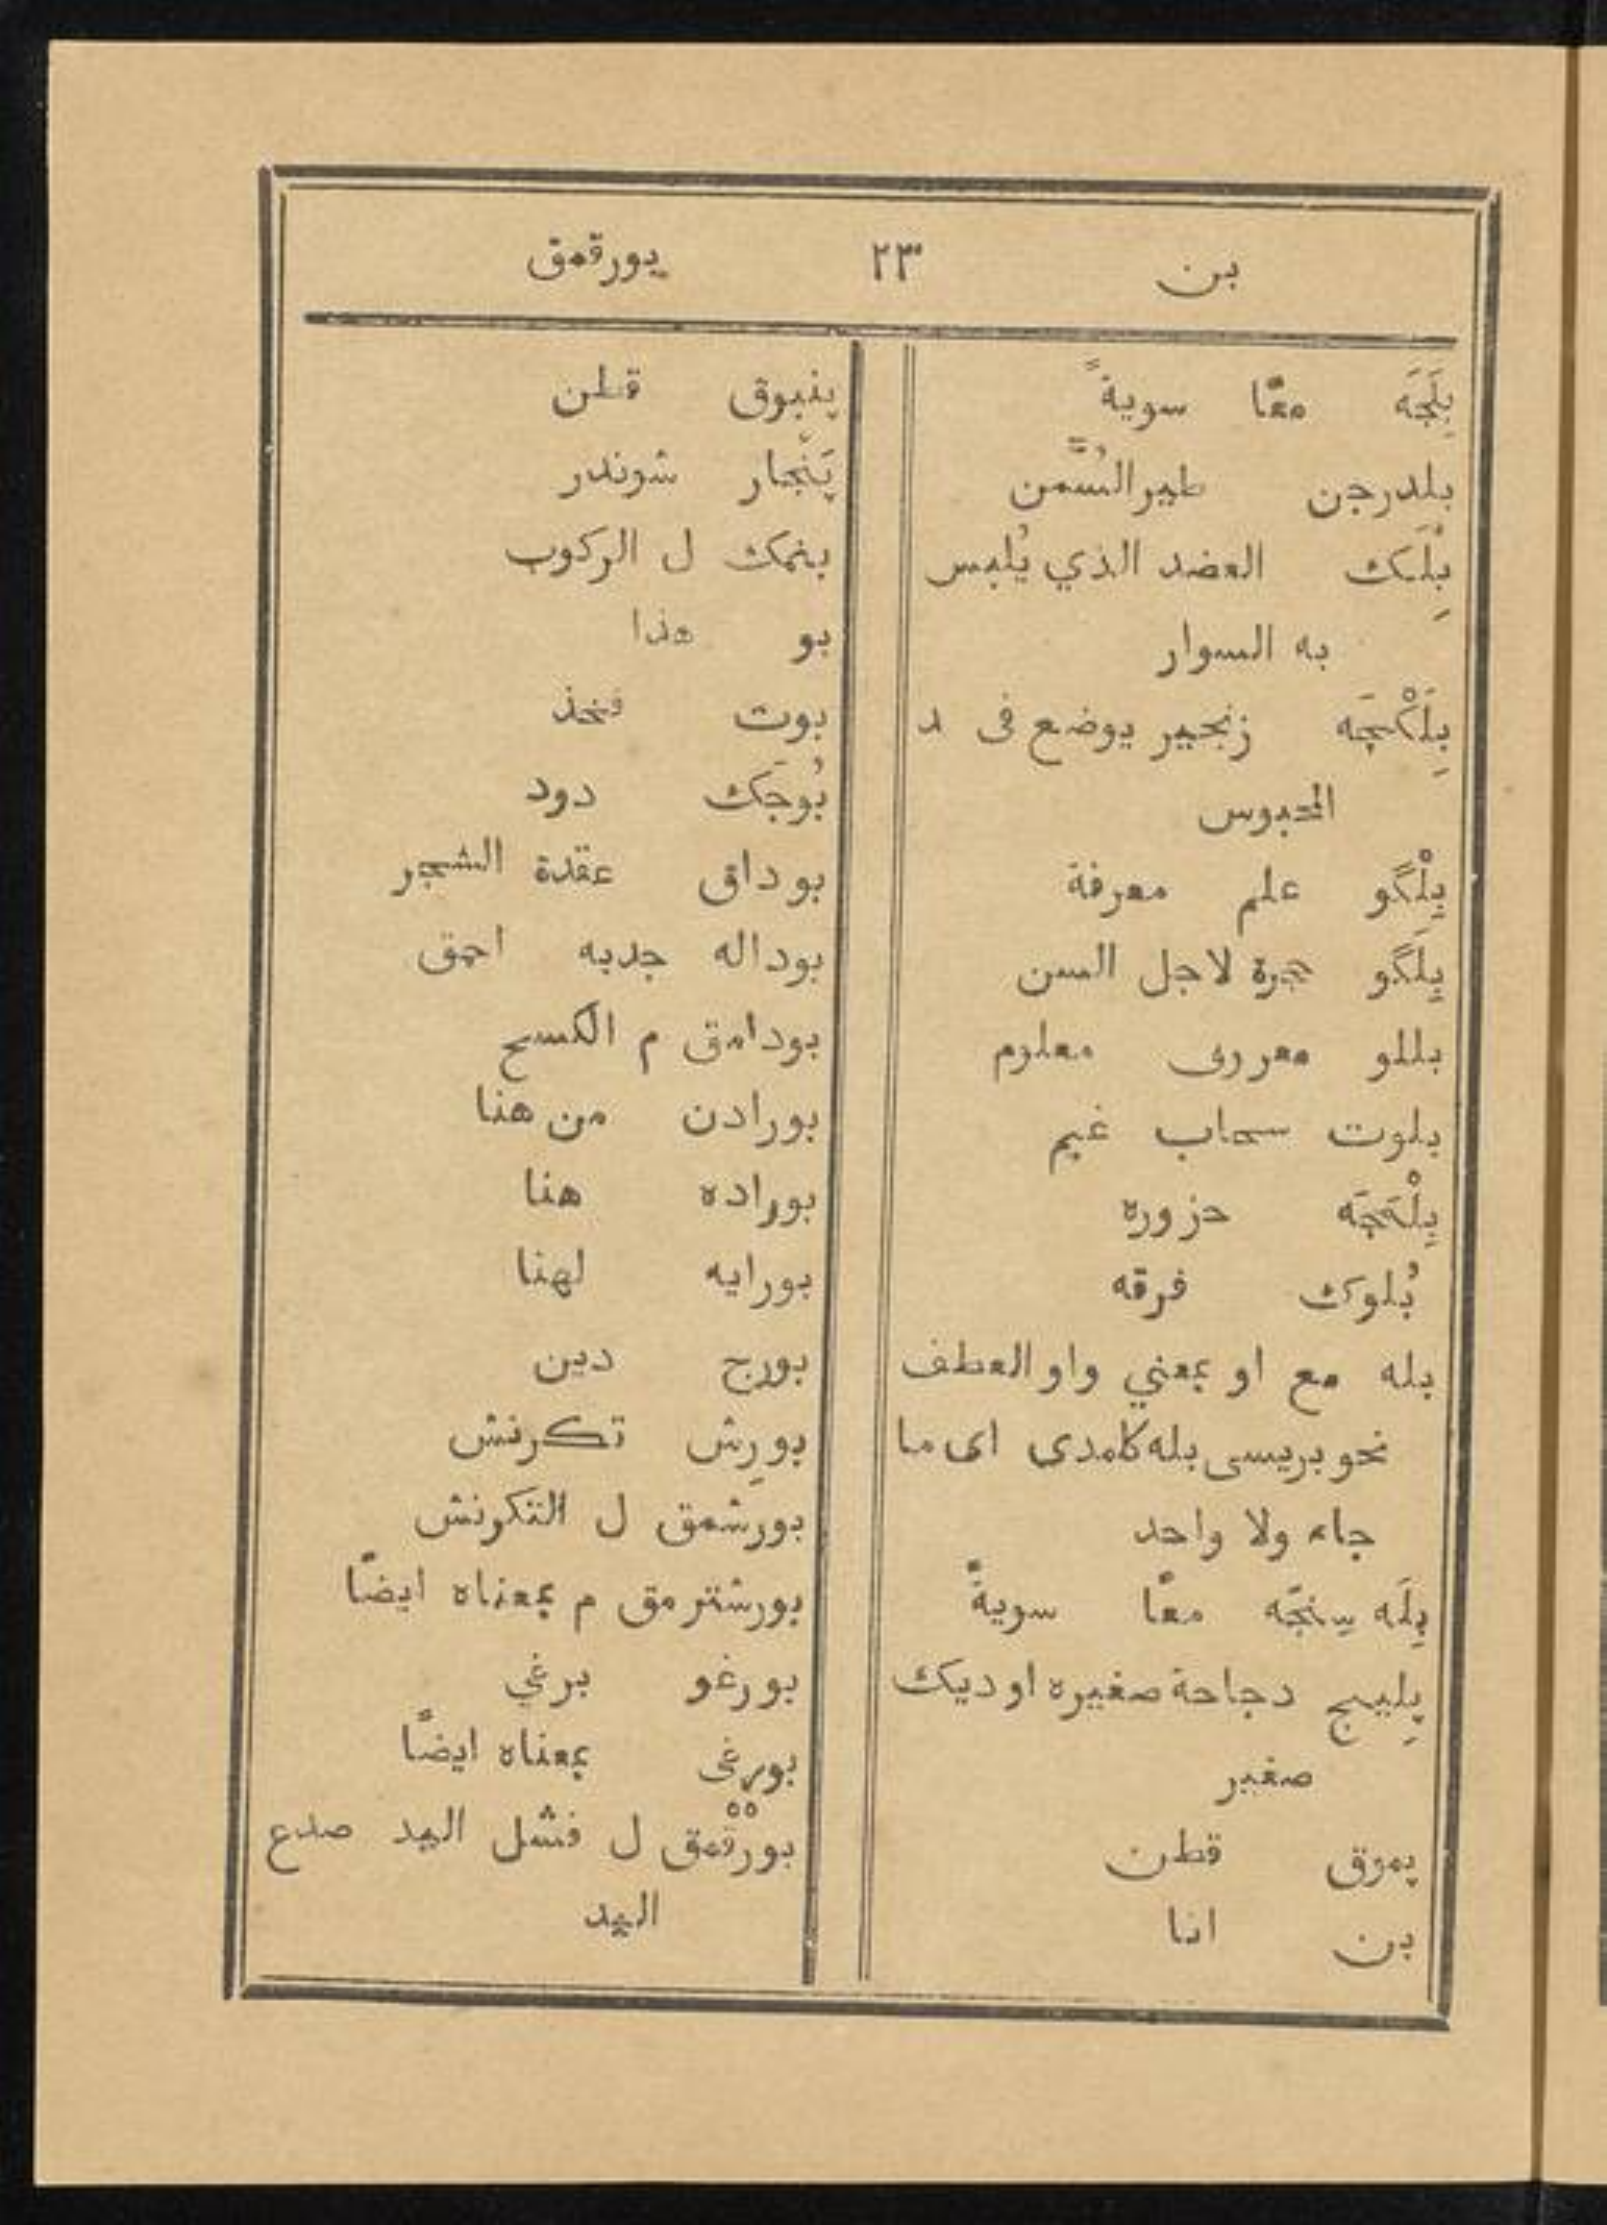 بن ٢٣ بورقمق
بِلَجَه معًا سويةً
بلدرجن طير السُمّن
بِلَك العضد الذي يُلبس
به السوار
بِلَكْجَه زنجير يوضع فى د
المحبوس
بِلْگو علم معرفة
بِلَگو حجرة لاجل السن
بللو معروف معلوم
بلوت سحاب غيم
بِلْمَجَه حزوره
بُلوك فرقه
بله مع او بمعني واو العطف
نحو بريسى بله كامدى اى ما
جاء ولا واحد
بِلَه سِنجَه معًا سويةً
پِليج دجاجة صغيره او ديك
صغير
پموق قطن
بن انا
پنبوق قطن
پَنْجار شوندر
بنمك ل الركوب
بو هذا
بوت فخذ
بُوجَك دود
بوداق عقدة الشجر
بوداله جدبه احمق
بودامق م الكسح
بورادن من هنا
بوراده هنا
بورايه لهنا
بورج دين
بورِش تكرنش
بورشمق ل التكرنش
بورشترمق م بمعناه ايضًا
بورغو برغي
بورغى بمعناه ايضًا
بورْقْمق ل فشل اليد صدع
اليد